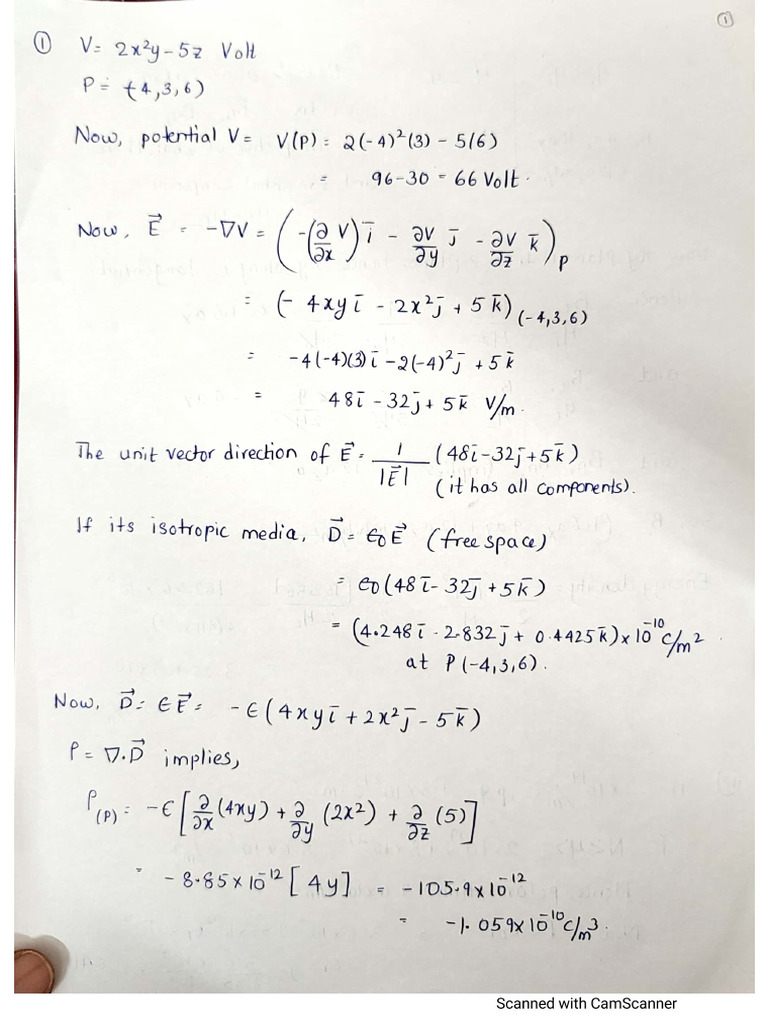 1
① V= 2x²y-5z Volt
P= (-4,3,6)
Now, potential V= V(P) = 2(-4)²(3) - 5(6)
= 96-30 = 66 Volt.
Now, E⃗ = -∇V = (-(∂/∂x V) i̅ - ∂V/∂y j̅ - ∂V/∂z k̅)_P
= (- 4xy i̅ - 2x² j̅ + 5 k̅)_(-4,3,6)
= -4(-4)(3) i̅ -2(-4)² j̅ +5 k̅
= 48 i̅ - 32 j̅ + 5 k̅ V/m.
The unit vector direction of E⃗ = 1/|E⃗| (48 i̅ -32 j̅ +5 k̅)
(it has all components).
If its isotropic media, D⃗ = ϵ0 E⃗ (free space)
= ϵ0 (48 i̅ - 32 j̅ +5 k̅)
= (4.248 i̅ - 2.832 j̅ + 0.4425 k̅) x 10⁻¹⁰ C/m²
at P(-4,3,6).
Now, D⃗ = ϵ E⃗ = -ϵ (4xy i̅ + 2x² j̅ - 5 k̅)
ρ = ∇.D⃗ implies,
ρ(P) = -ϵ [∂/∂x (4xy) + ∂/∂y (2x²) + ∂/∂z (5)]
= -8.85x10⁻¹² [4y] = -105.9x10⁻¹²
= -1.059x10⁻¹⁰ C/m³.
Scanned with CamScanner